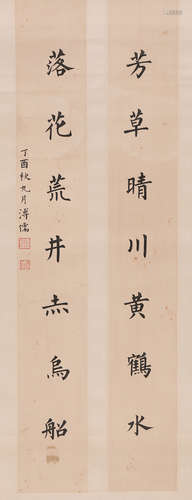 芳草晴川黃鶴水
落花荒井赤烏船
丁酉秋九月溥儒